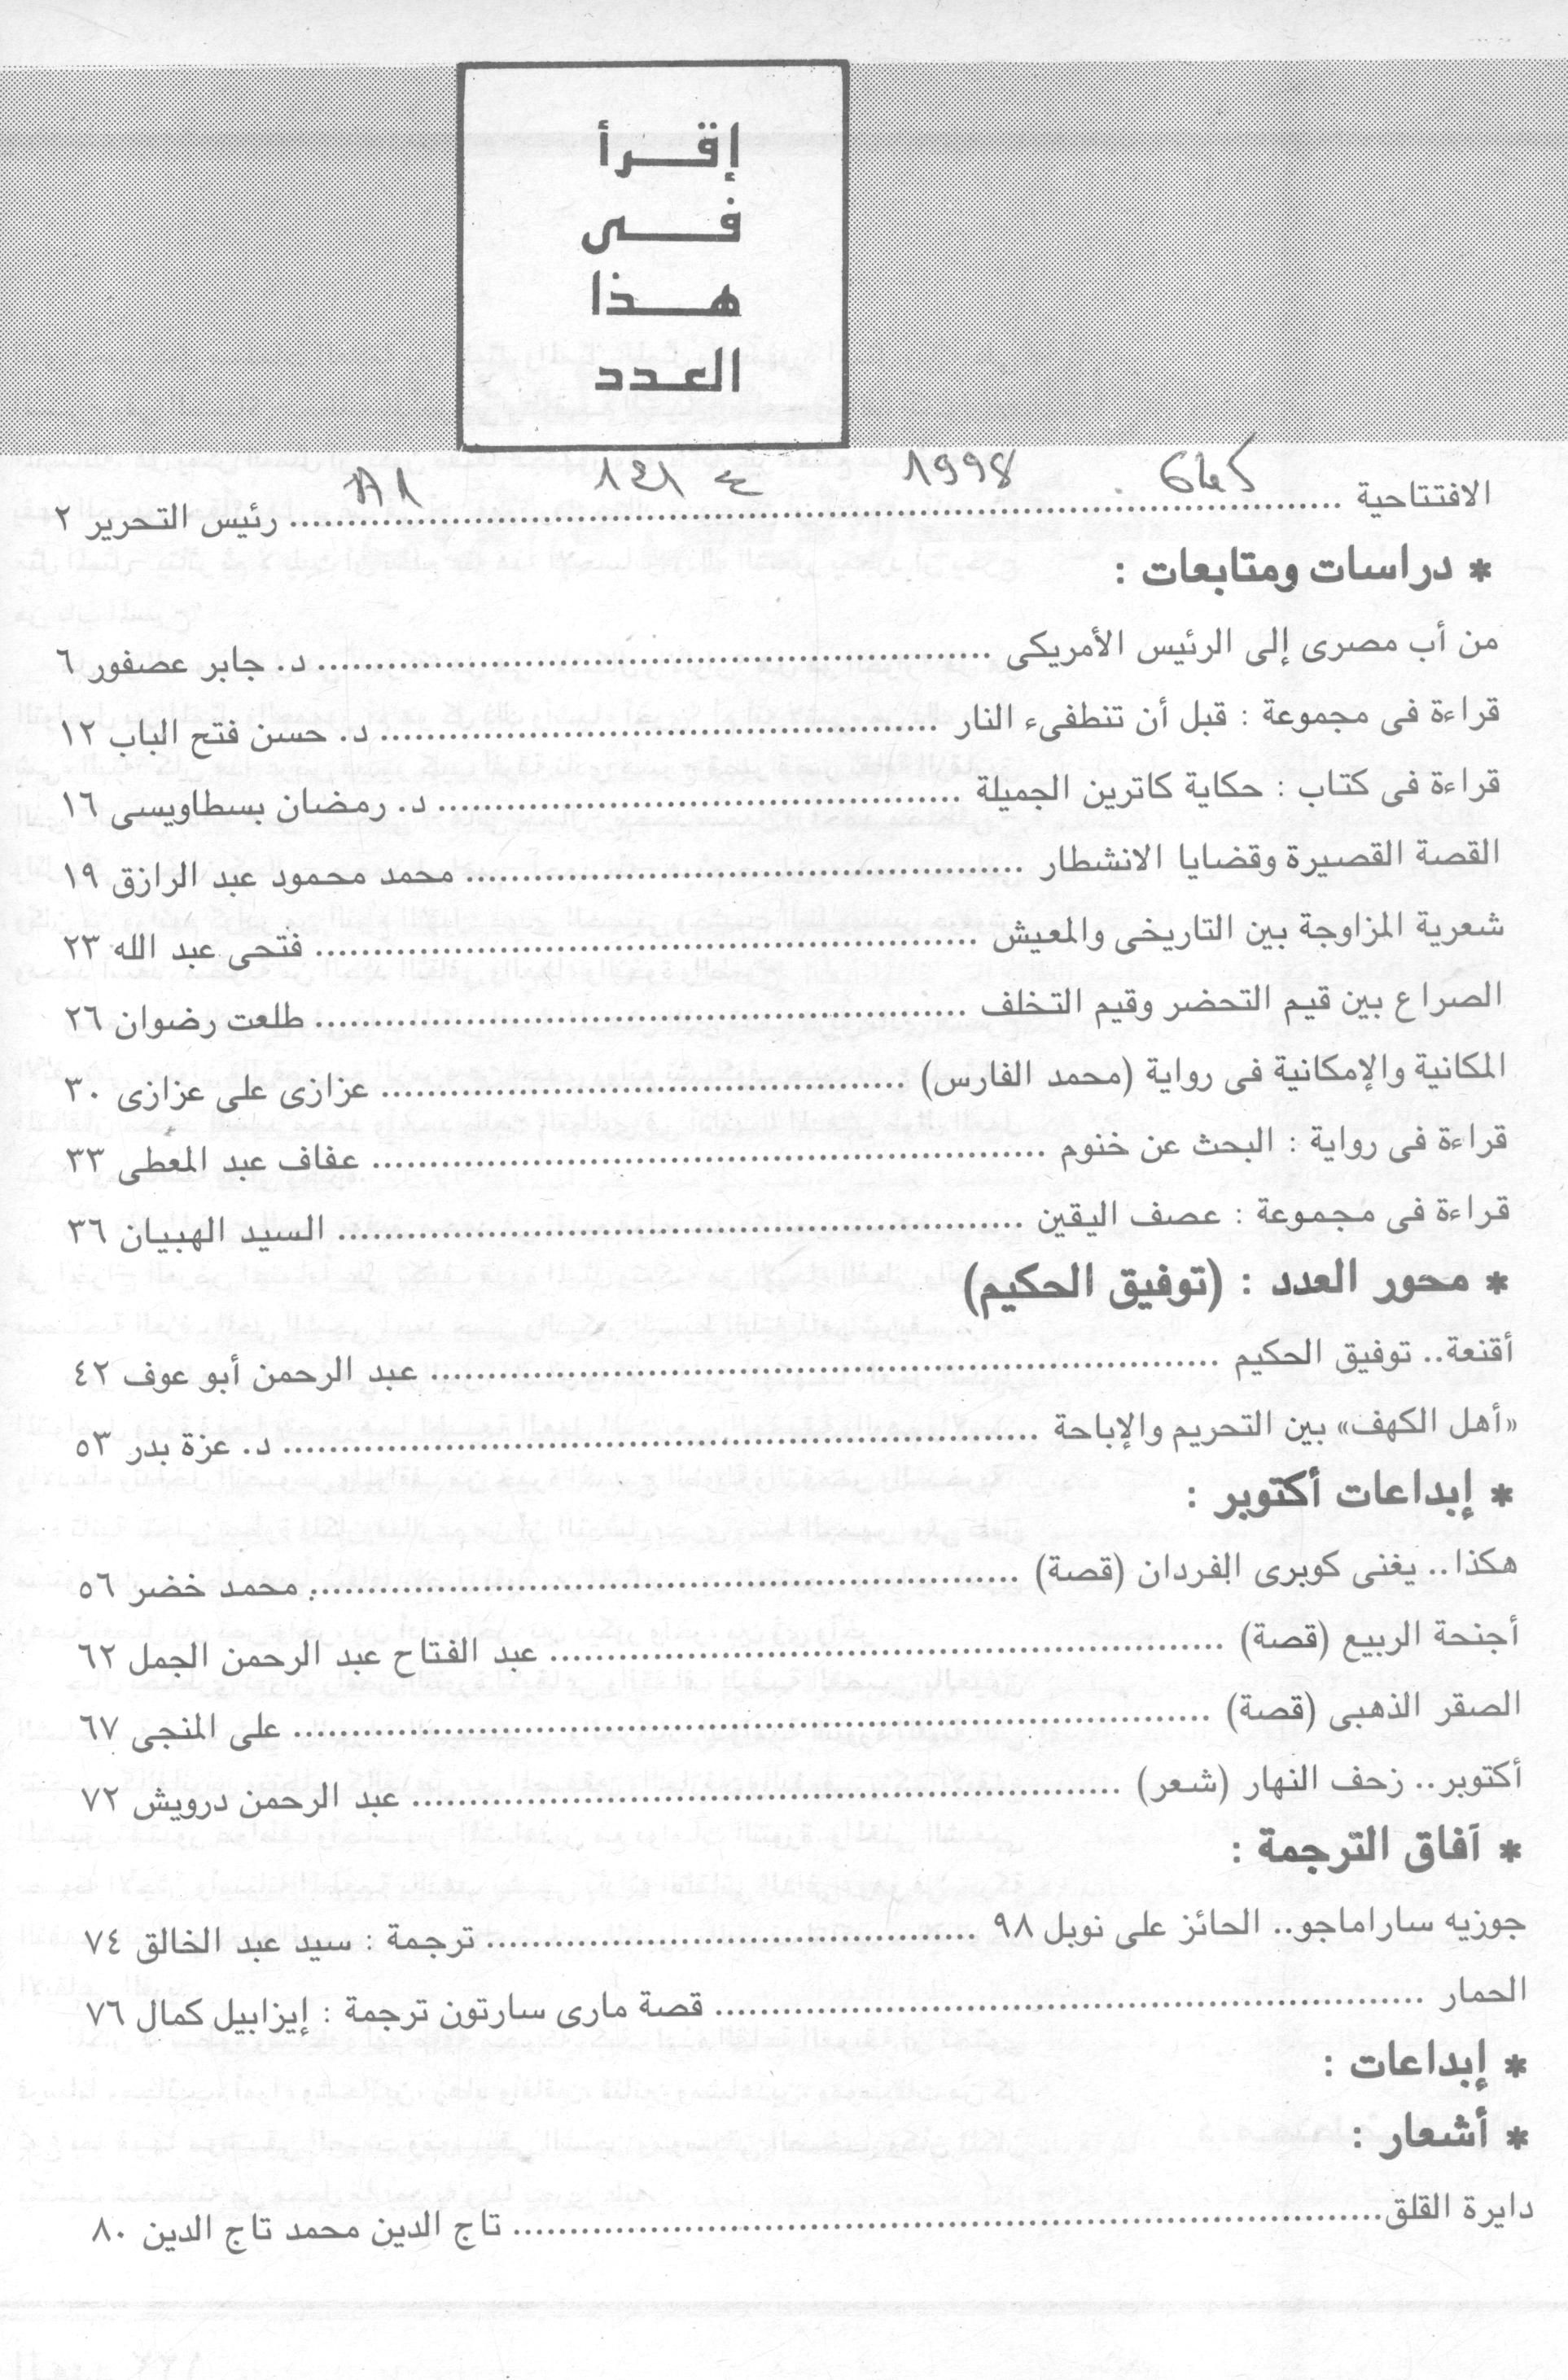 إقرأ
فى
هذا
العدد
1998
الافتتاحية ........ رئيس التحرير ٢
* دراسات ومتابعات :
من أب مصرى إلى الرئيس الأمريكى ........ د. جابر عصفور ٦
قراءة فى مجموعة : قبل أن تنطفىء النار ........ د. حسن فتح الباب ١٢
قراءة فى كتاب : حكاية كاترين الجميلة ........ د. رمضان بسطاويسى ١٦
القصة القصيرة وقضايا الانشطار ........ محمد محمود عبد الرازق ١٩
شعرية المزاوجة بين التاريخى والمعيش ........ فتحى عبد الله ٢٣
الصراع بين قيم التحضر وقيم التخلف ........ طلعت رضوان ٢٦
المكانية والإمكانية فى رواية (محمد الفارس) ........ عزازى على عزازى ٣٠
قراءة فى رواية : البحث عن خنوم ........ عفاف عبد المعطى ٣٣
قراءة فى مجموعة : عصف اليقين ........ السيد الهبيان ٣٦
* محور العدد : (توفيق الحكيم)
أقنعة.. توفيق الحكيم ........ عبد الرحمن أبو عوف ٤٢
«أهل الكهف» بين التحريم والإباحة ........ د. عزة بدر ٥٣
* إبداعات أكتوبر :
هكذا.. يغنى كوبرى الفردان (قصة) ........ محمد خضر ٥٦
أجنحة الربيع (قصة) ........ عبد الفتاح عبد الرحمن الجمل ٦٢
الصقر الذهبى (قصة) ........ على المنجى ٦٧
أكتوبر.. زحف النهار (شعر) ........ عبد الرحمن درويش ٧٢
* آفاق الترجمة :
جوزيه ساراماجو.. الحائز على نوبل ٩٨ ........ ترجمة : سيد عبد الخالق ٧٤
الحمار ........ قصة مارى سارتون ترجمة : إيزابيل كمال ٧٦
* إبداعات :
* أشعار :
دايرة القلق........ تاج الدين محمد تاج الدين ٨٠